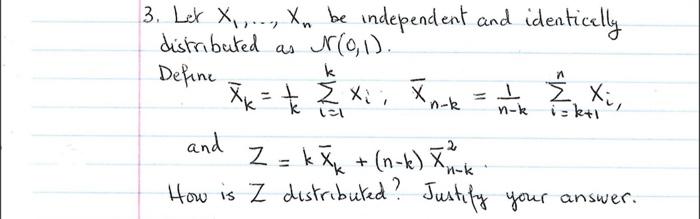 3. Let X₁,..., Xₙ be independent and identically
distributed as N(0,1).
Define X̄ₖ = 1/k Σᵢ₌₁ᵏ Xᵢ, X̄ₙ₋ₖ = 1/(n-k) Σᵢ₌ₖ₊₁ⁿ Xᵢ,
and Z = k X̄ₖ + (n-k) X̄ₙ₋ₖ².
How is Z distributed? Justify your answer.